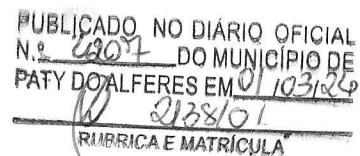 PUBLICADO NO DIÁRIO OFICIAL
N.º 4207 DO MUNICÍPIO DE
PATY DO ALFERES EM 01/03/24
2138/01
RUBRICA E MATRÍCULA